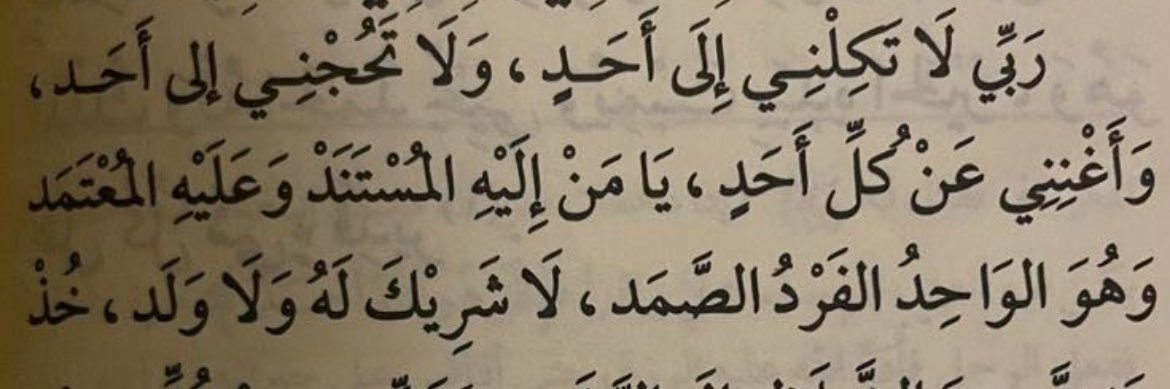 رَبِّي لَا تَكِلْنِي إِلَى أَحَدٍ، وَلَا تَحُجْنِي إلى أَحَد،
وَأَغْنِنِي عَنْ كُلِّ أَحَدٍ، يَا مَنْ إِلَيْهِ المُسْتَنَدْ وَعَلَيْهِ المُعْتَمَد
وَهُوَ الوَاحِدُ الفَرْدُ الصَّمَد، لَا شَرِيْكَ لَهُ وَلَا وَلَد، خُذْ